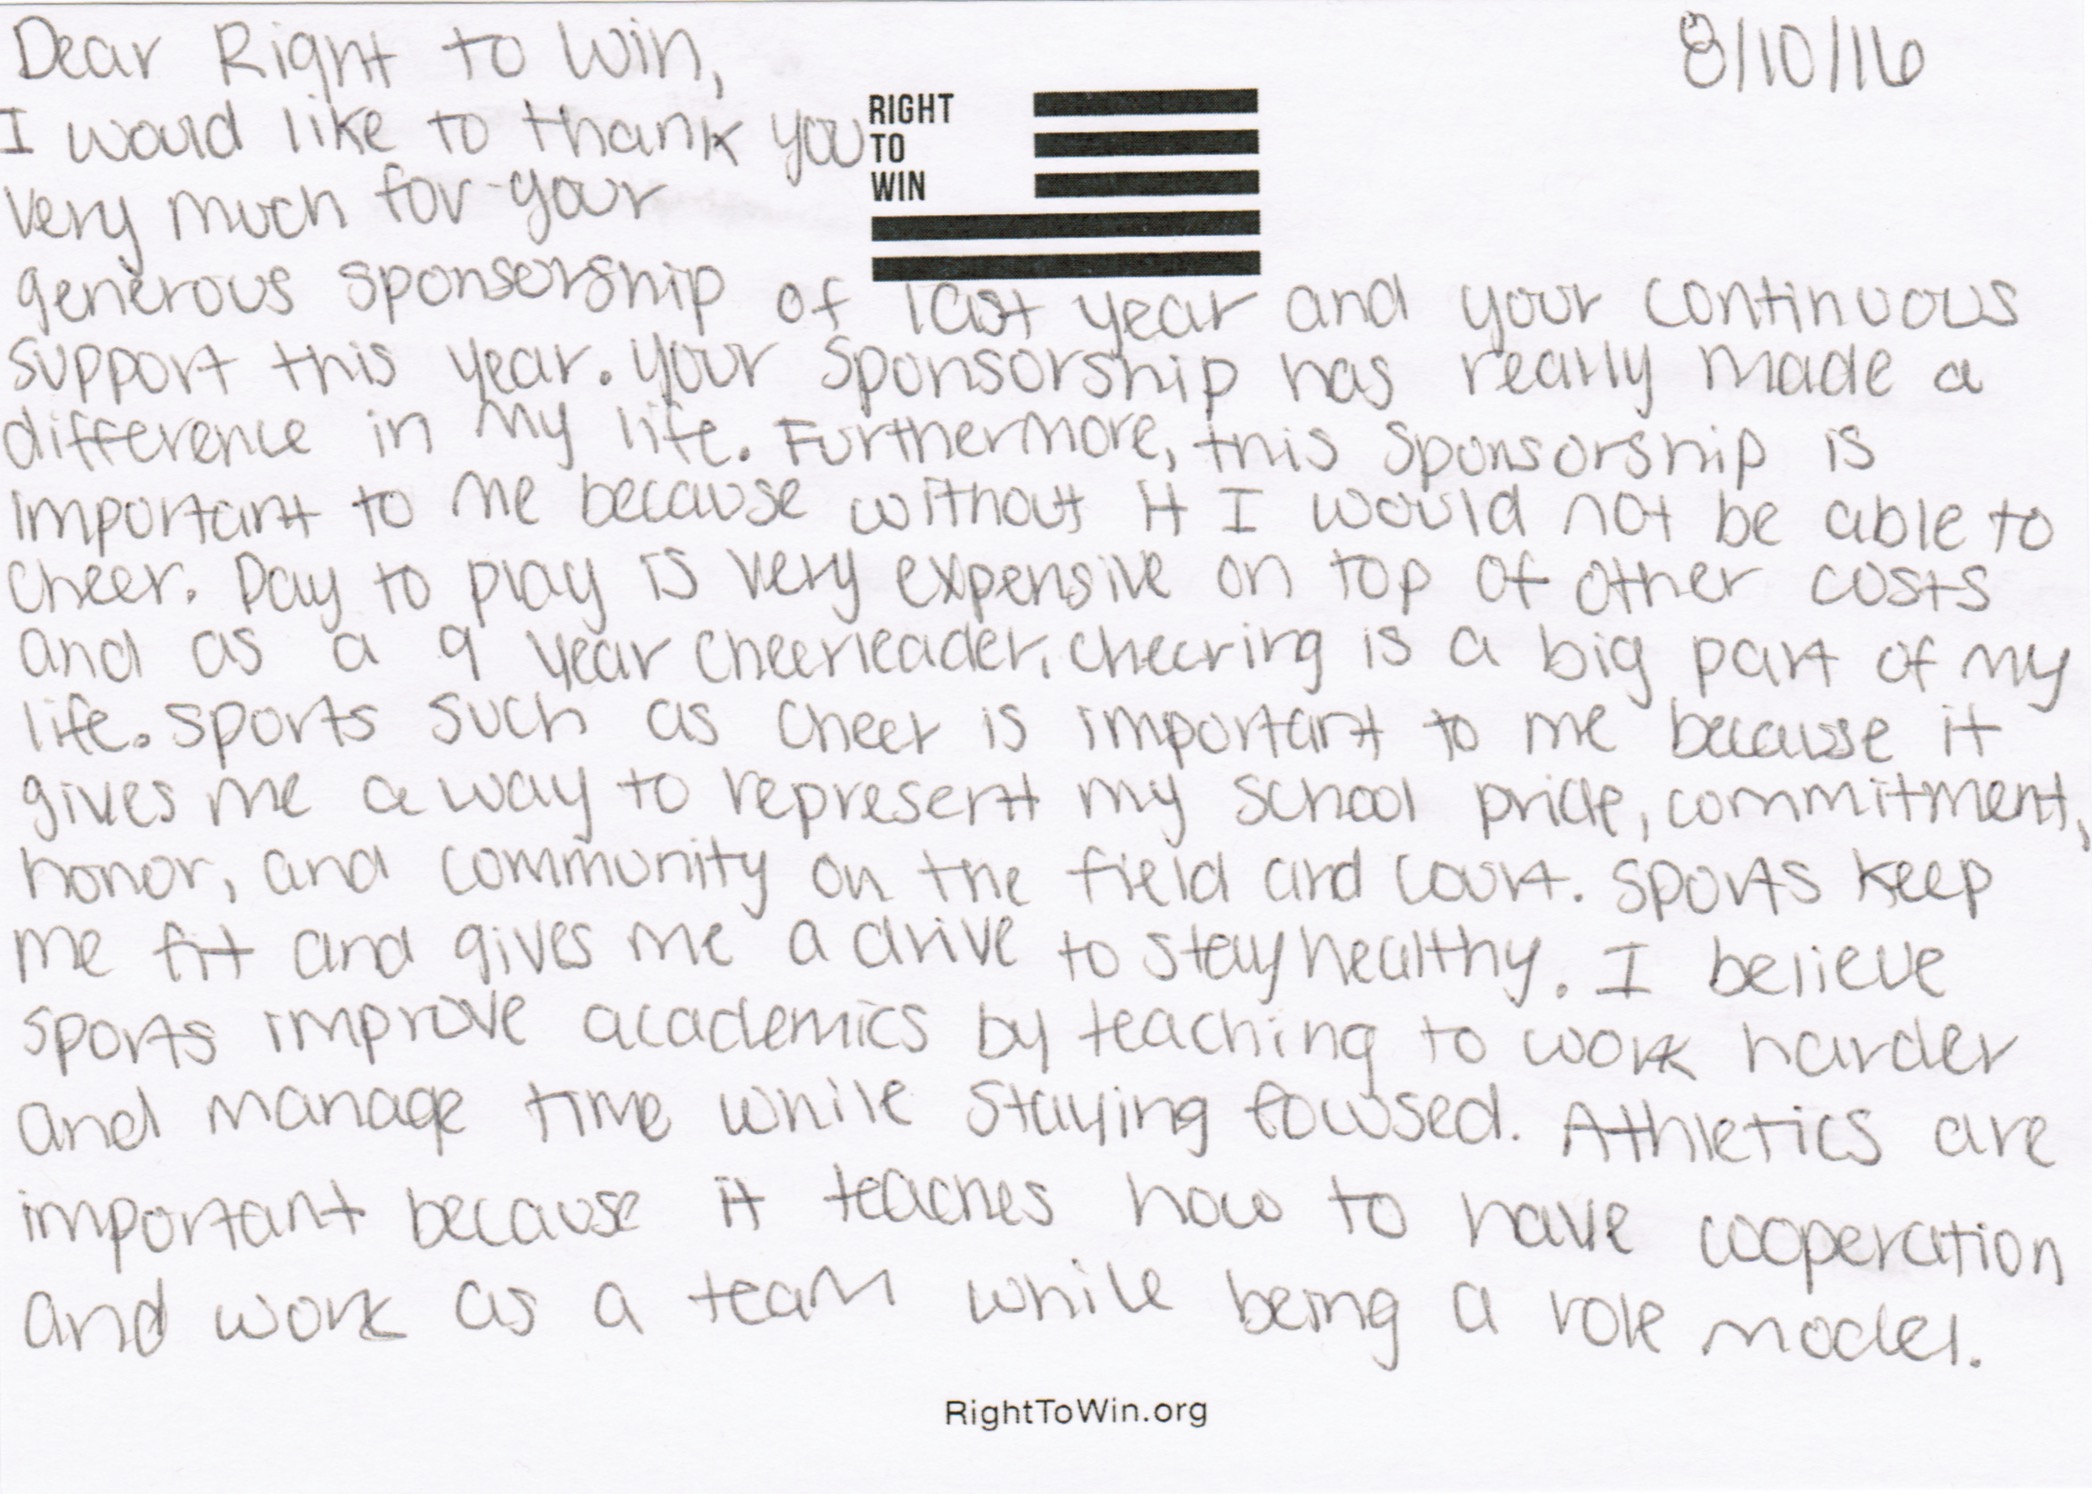 Dear Right to Win,
8/10/16
I would like to thank you
RIGHT
TO
WIN
very much for your
generous sponsorship of last year and your continuous
support this year. Your sponsorship has really made a
difference in my life. Furthermore, this sponsorship is
important to me because without it I would not be able to
cheer. Pay to play is very expensive on top of other costs
and as a 9 year cheerleader, cheering is a big part of my
life. Sports such as cheer is important to me because it
gives me a way to represent my school pride, commitment,
honor, and community on the field and court. Sports keep
me fit and gives me a drive to stay healthy. I believe
sports improve academics by teaching to work harder
and manage time while staying focused. Athletics are
important because it teaches how to have cooperation
and work as a team while being a role model.
RightToWin.org